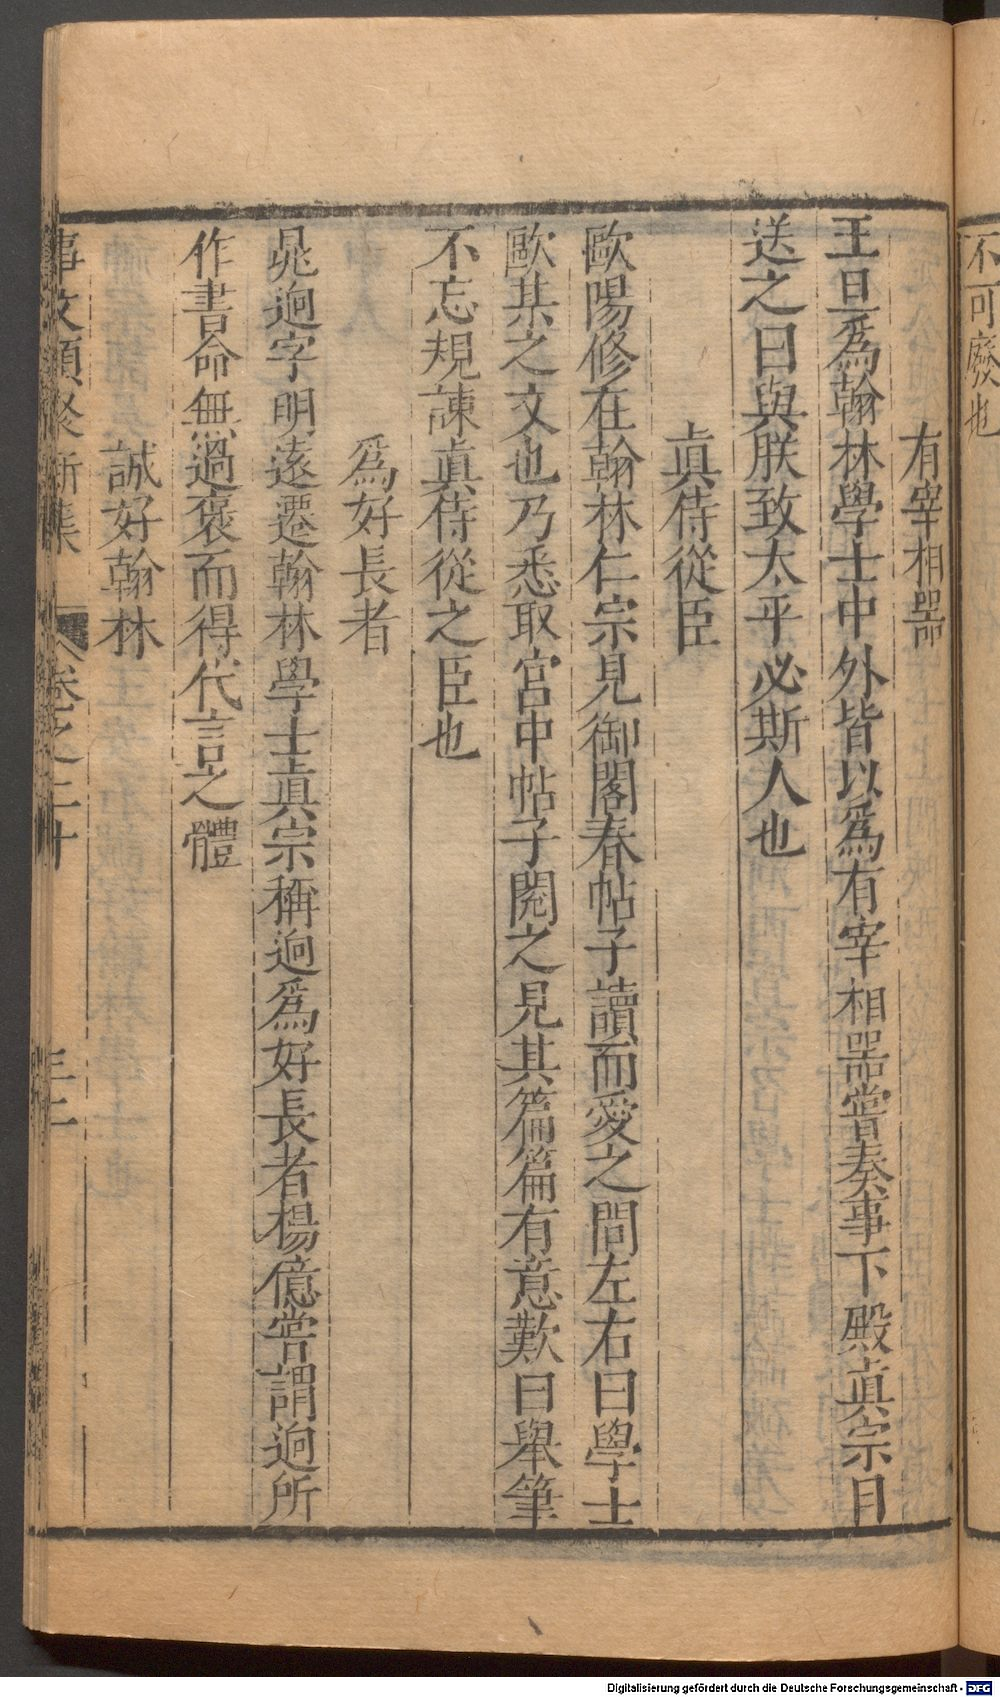 不可廢也
有宰相噐
王旦爲翰林學士中外皆以爲有宰相噐嘗奏事下殿眞宗目
送之曰與朕致太平必斯人也
眞侍從臣
歐陽修在翰林仁宗見御閣春帖子讀而愛之問左右曰學士
歐某之文也乃悉取宮中帖子閱之見其篇篇有意歎曰舉筆
不忘規諫眞侍從之臣也
爲好長者
晁逈字明遠遷翰林學士眞宗稱逈爲好長者楊億嘗謂逈所
作書命無過褒而得代言之體
誠好翰林
事文類聚新集 卷之二十 三二
Digitalisierung gefördert durch die Deutsche Forschungsgemeinschaft - DFG